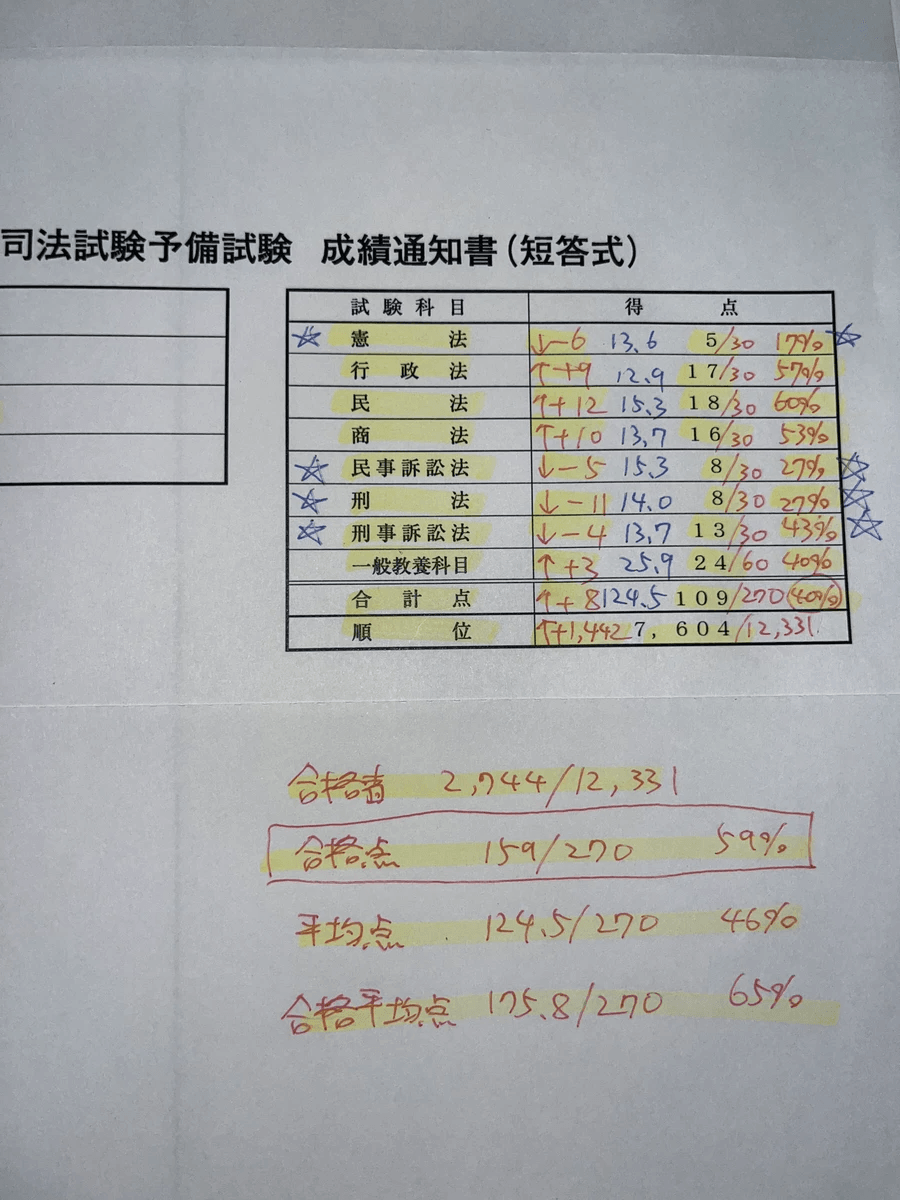 司法試験予備試験 成績通知書(短答式)
試験科目 得点
☆ 憲法 ↓-6 13.6 5/30 17% ☆
行政法 ↑+9 12.9 17/30 57%
民法 ↑+12 15.3 18/30 60%
商法 ↑+10 13.7 16/30 53%
☆ 民事訴訟法 ↓-5 15.3 8/30 27% ☆
☆ 刑法 ↓-11 14.0 8/30 27% ☆
☆ 刑事訴訟法 ↓-4 13.7 13/30 43% ☆
一般教養科目 ↑+3 25.9 24/60 40%
合計点 ↑+8 124.5 109/270 (40%)
順位 ↑+1,442 7,604/12,331
合格者 2,744/12,331
合格点 159/270 59%
平均点 124.5/270 46%
合格平均点 175.8/270 65%